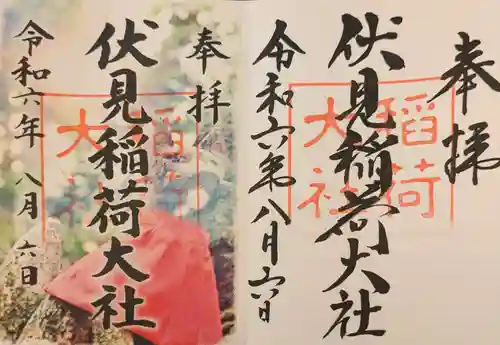 奉拝
伏見稲荷大社
令和六年八月六日
稲荷
大社
奉拝
伏見稲荷大社
令和六年八月六日
稲荷
大社